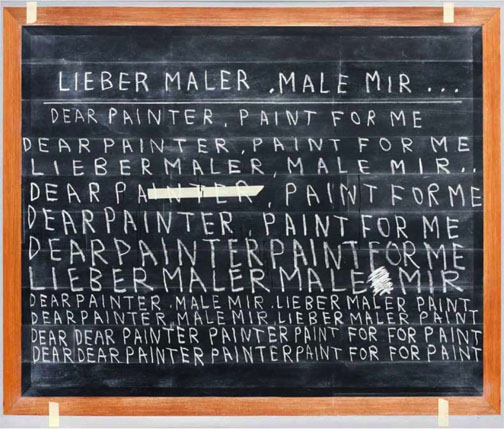 LIEBER MALER , MALE MIR ...
DEAR PAINTER, PAINT FOR ME
DEAR PAINTER, PAINT FOR ME
LIEBER MALER, MALE MIR..
DEAR PAINTER, PAINT FOR ME
DEAR PAINTER, PAINT FOR ME
DEAR PAINTER PAINT FOR ME
LIEBER MALER MALE MIR
DEAR PAINTER, MALE MIR .LIEBER MALER PAINT
DEAR PAINTER, MALE MIR .LIEBER MALER PAINT
DEAR DEAR PAINTER PAINTER PAINT FOR FOR PAINT
DEAR DEAR PAINTER PAINTER PAINT FOR FOR PAINT